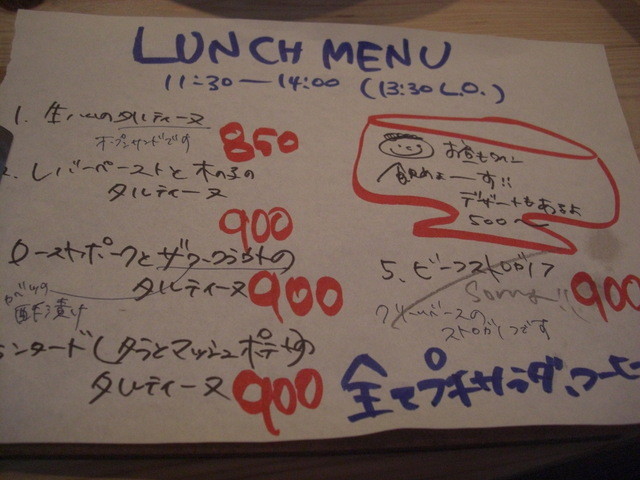 LUNCH MENU
11:30—14:00 (13:30 L.O.)
1. 生ハムのタルティーヌ
オープンサンドです
850
レバーペーストと木の子の
タルティーヌ
900
ローストポークとザワークラウトの
タルティーヌ 900
キャベツの
酢漬け
ブランダード(タラとマッシュポテト)の
タルティーヌ 900
お昼もワイン
飲めまーす!!
デザートもあるよ
500〜
5. ビーフストロガノフ
Sorry!! 900
クリームベースの
ストロガノフです
全てプチサラダ、コーヒー